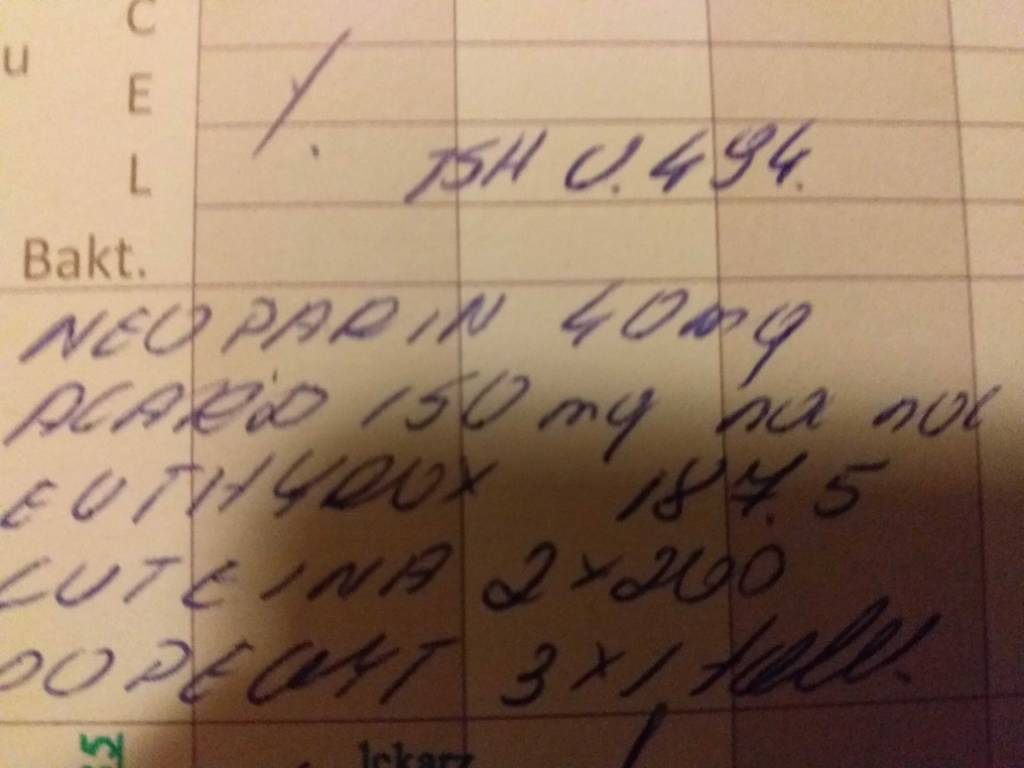 C
u
E
/.
L
TSH 0.494.
Bakt.
NEOPARIN 40mg
ACARD 150 mg na noc
EUTHYROX 187.5
LUTEINA 2 x 200
DOPEGYT 3 x 1 tabl.
55
lekarz